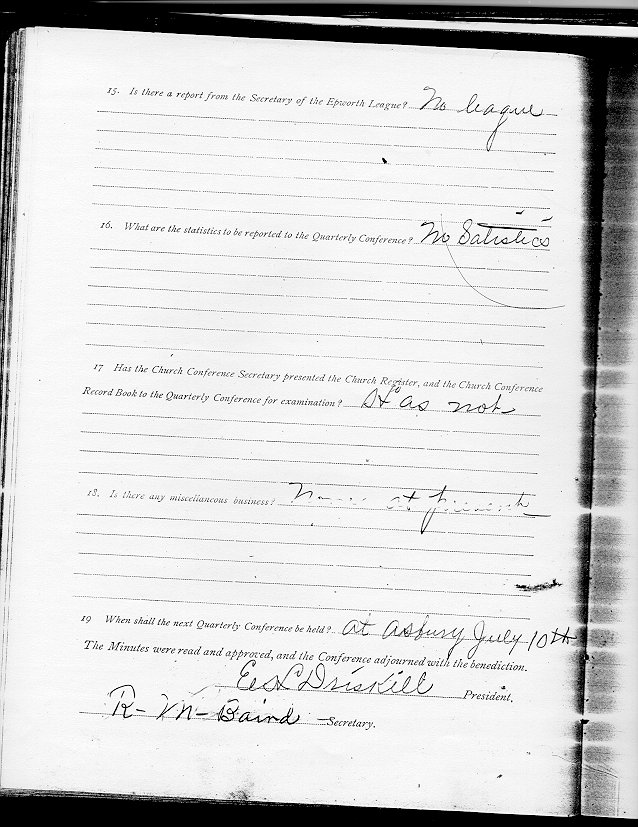 15. Is there a report from the Secretary of the Epworth League? No league
16. What are the statistics to be reported to the Quarterly Conference? No Satistics
17 Has the Church Conference Secretary presented the Church Register, and the Church Conference
Record Book to the Quarterly Conference for examination? Has not
18. Is there any miscellaneous business? None at present
19 When shall the next Quarterly Conference be held? at Asbury July 10th
The Minutes were read and approved, and the Conference adjourned with the benediction.
Driskill President.
R-M-Baird Secretary.